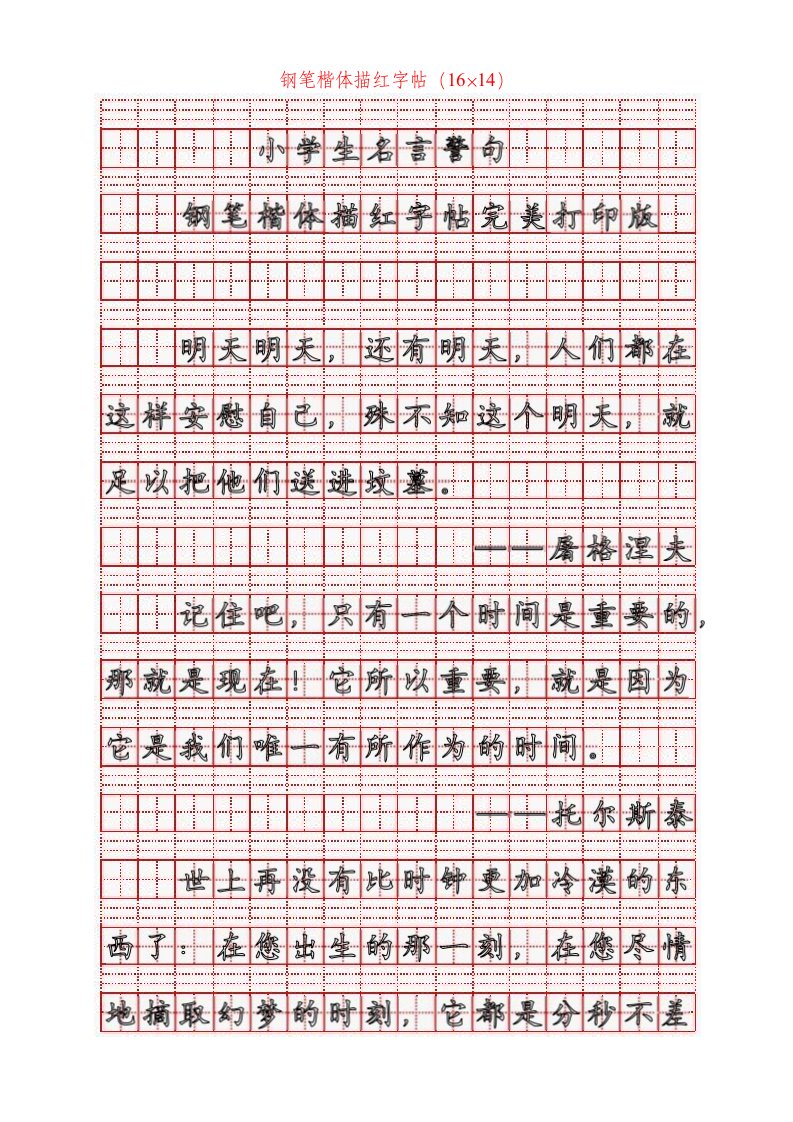 钢笔楷体描红字帖（16×14）
小学生名言警句
钢笔楷体描红字帖完美打印版
明天明天，还有明天，人们都在
这样安慰自己，殊不知这个明天，就
足以把他们送进坟墓。
——屠格涅夫
记住吧，只有一个时间是重要的，
那就是现在！它所以重要，就是因为
它是我们唯一有所作为的时间。
——托尔斯泰
世上再没有比时钟更加冷漠的东
西了：在您出生的那一刻，在您尽情
地摘取幻梦的时刻，它都是分秒不差